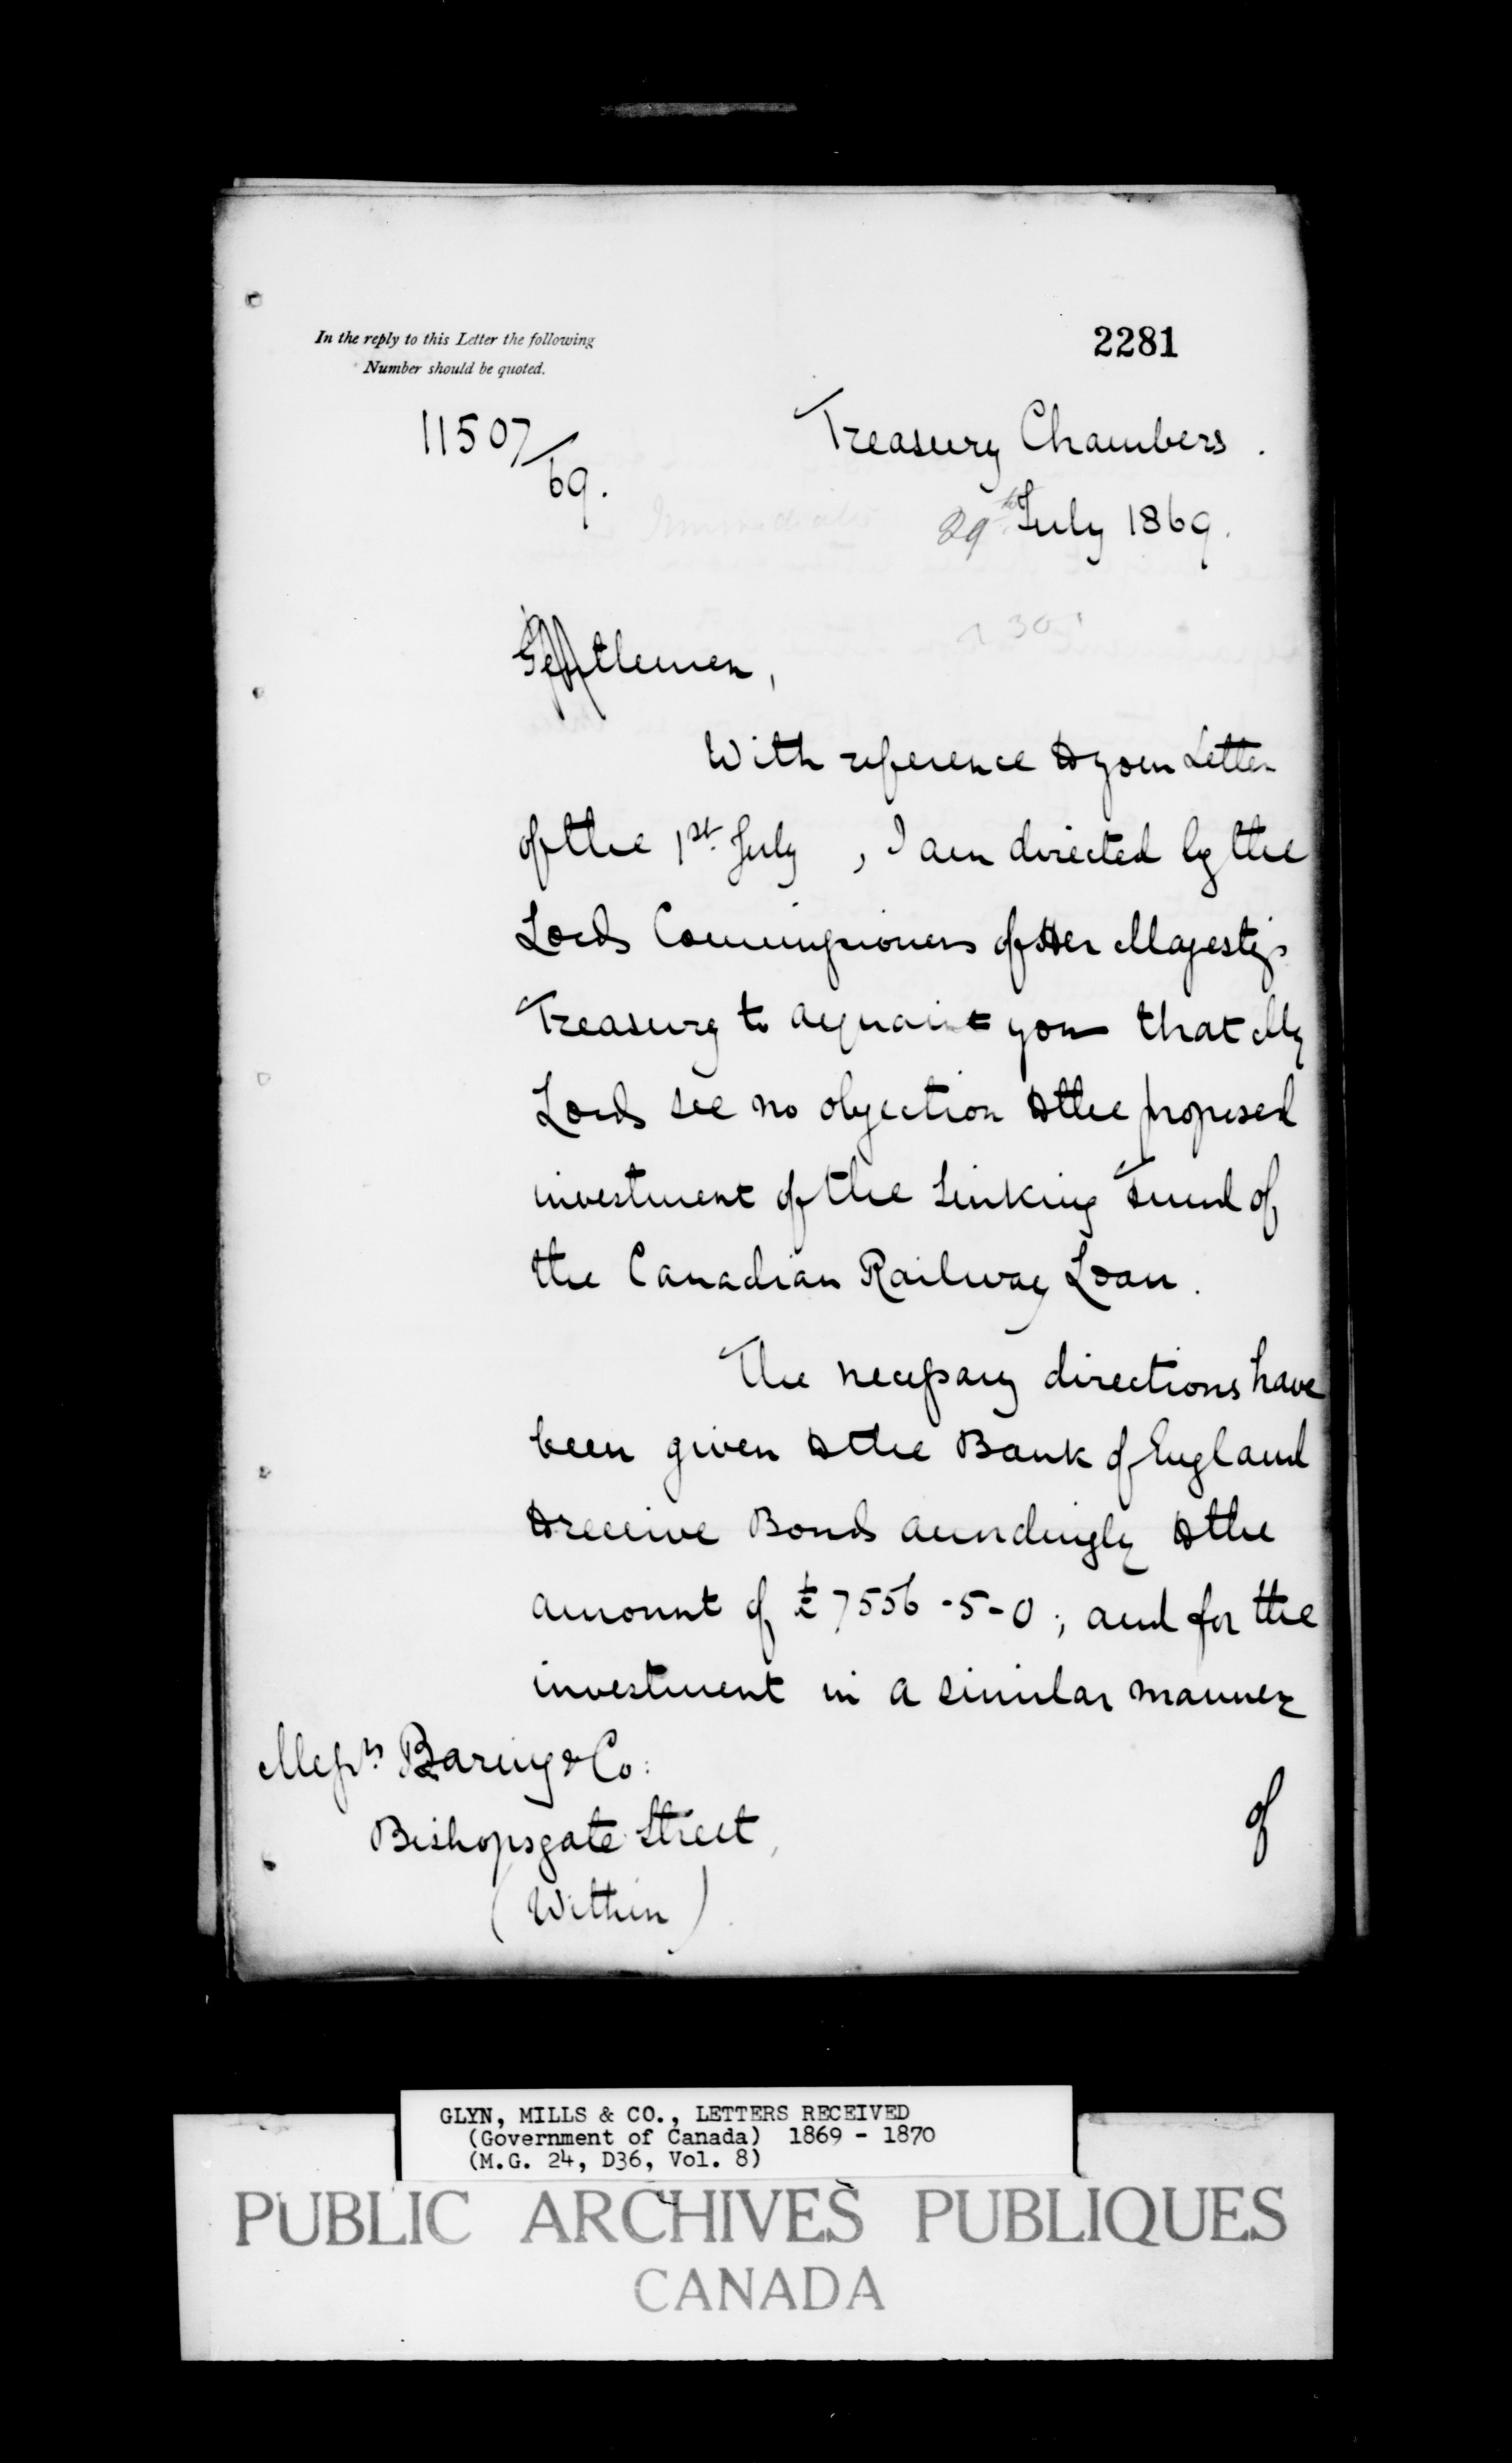 2281
In the reply to this Letter the following
Number should be quoted.
11507/69.
Treasury Chambers.
29th July 1869.
Gentlemen,
With reference to your Letter
of the 1st July, I am directed by the
Lords Commissioners of Her Majesty's
Treasury to acquaint you that My
Lords see no objection to the proposed
investment of the Sinking Fund of
the Canadian Railway Loan.
The necessary directions have
been given to the Bank of England
to receive Bonds accordingly to the
amount of £7556-5-0; and for the
investment in a similar manner
of
Messrs Baring & Co:
Bishopsgate Street,
(Within).
GLYN, MILLS & CO., LETTERS RECEIVED
(Government of Canada) 1869 - 1870
(M.G. 24, D36, Vol. 8)
PUBLIC ARCHIVES PUBLIQUES
CANADA